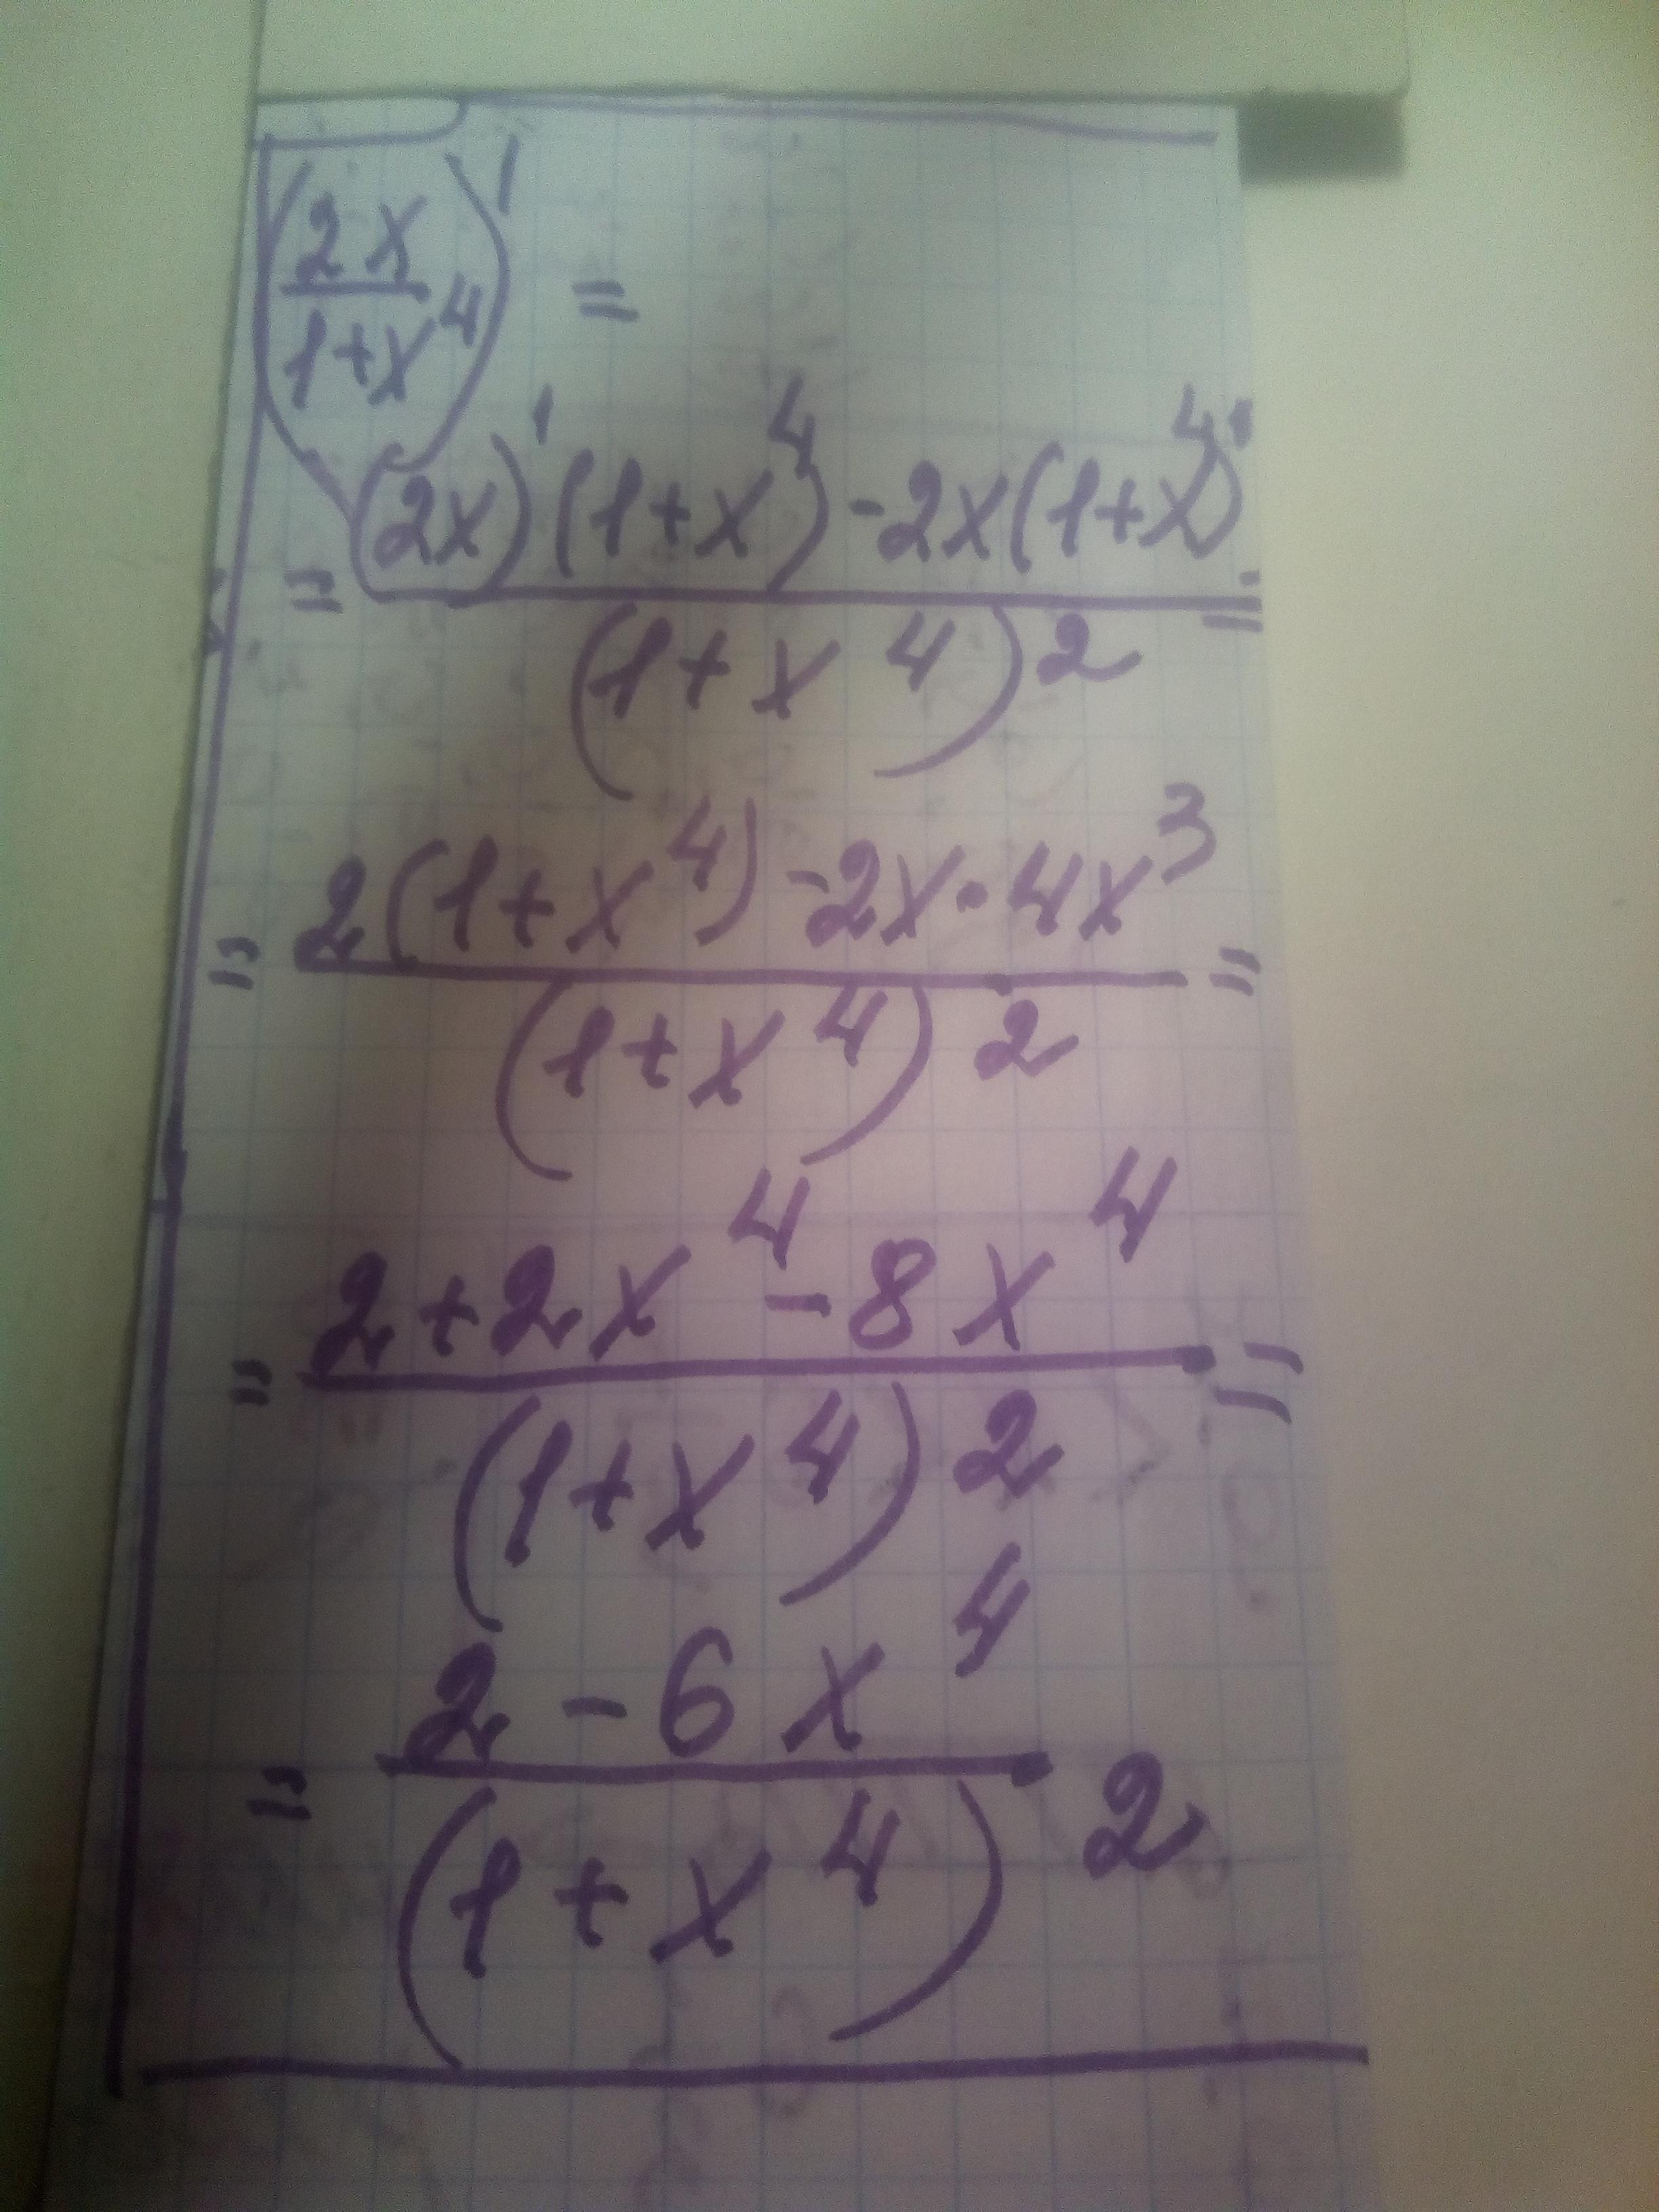 (2x/(1+x⁴))' =
= ((2x)'(1+x⁴)-2x(1+x⁴)')/(1+x⁴)² =
= (2(1+x⁴)-2x·4x³)/(1+x⁴)² =
= (2+2x⁴-8x⁴)/(1+x⁴)² =
= (2-6x⁴)/(1+x⁴)²